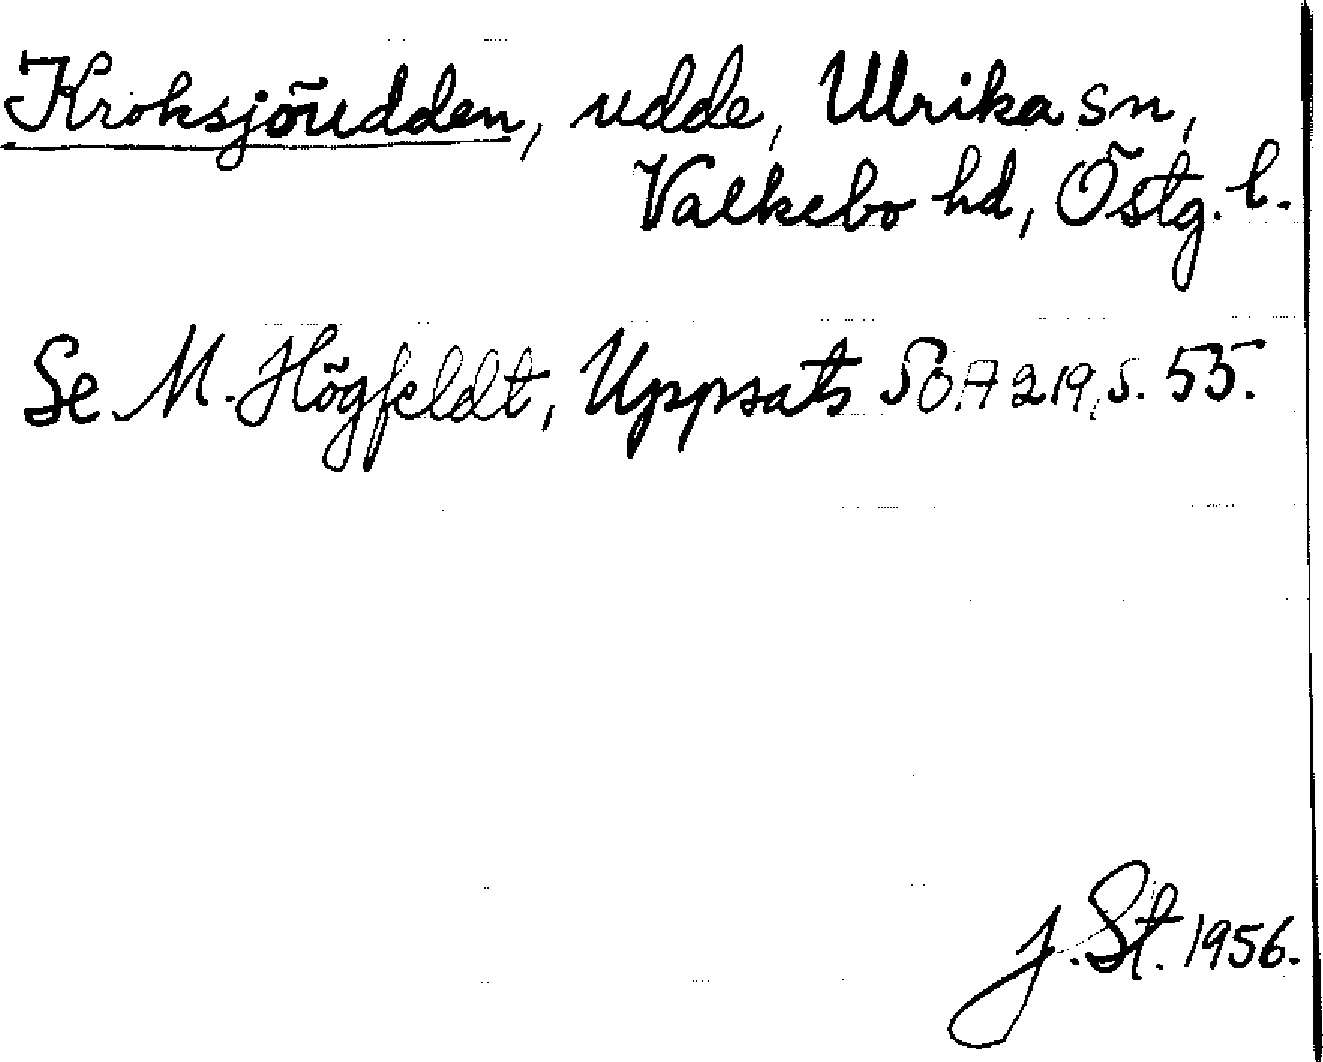 Kroksjöudden, udde, Ulrika sn,
Valkebo hd, Östg. l.
Se M. Högfeldt, Uppsats SOA 219, s. 55.
J. St. 1956.